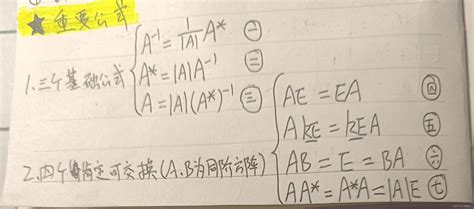 ★ 重要公式
1. 三个基础公式
A⁻¹ = 1/|A| A* ㊀
A* = |A|A⁻¹ ㊁
A = |A|(A*)⁻¹ ㊂
2. 四个肯定可交换(A、B为同阶方阵)
AE = EA ㊃
AkE = kEA ㊄
AB = E = BA ㊅
AA* = A*A = |A|E ㊆